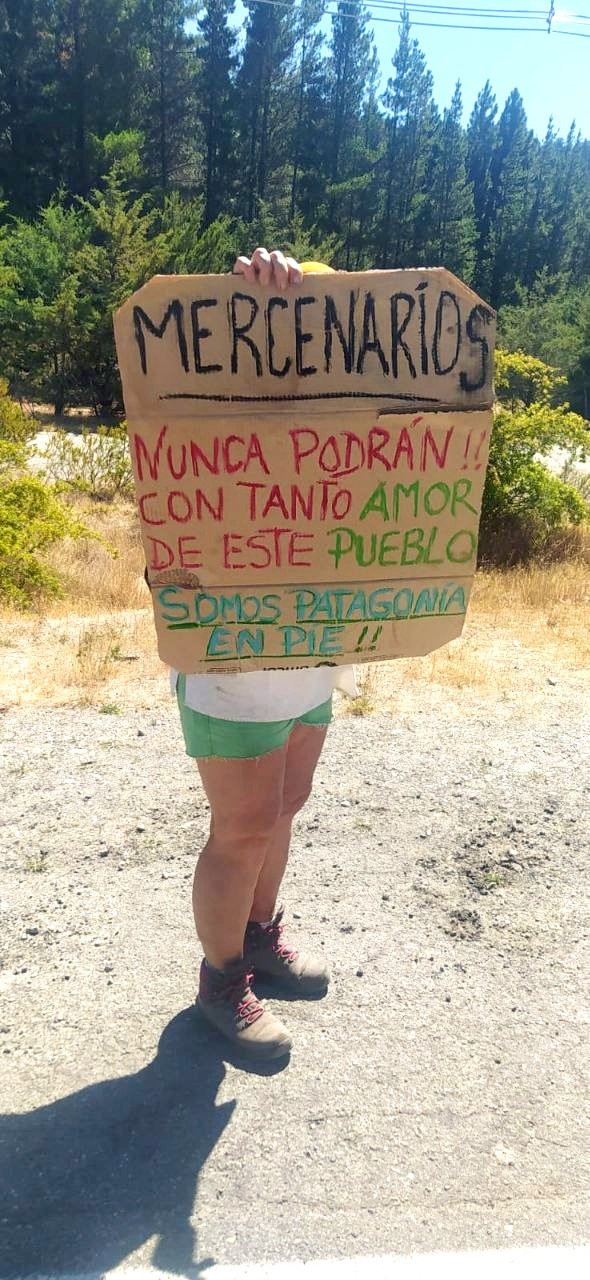 MERCENARÍOS
NUNCA PODRÁN!!
CON TANTO AMOR
DE ESTE PUEBLO
SOMOS PATAGONÍA
EN PIE!!